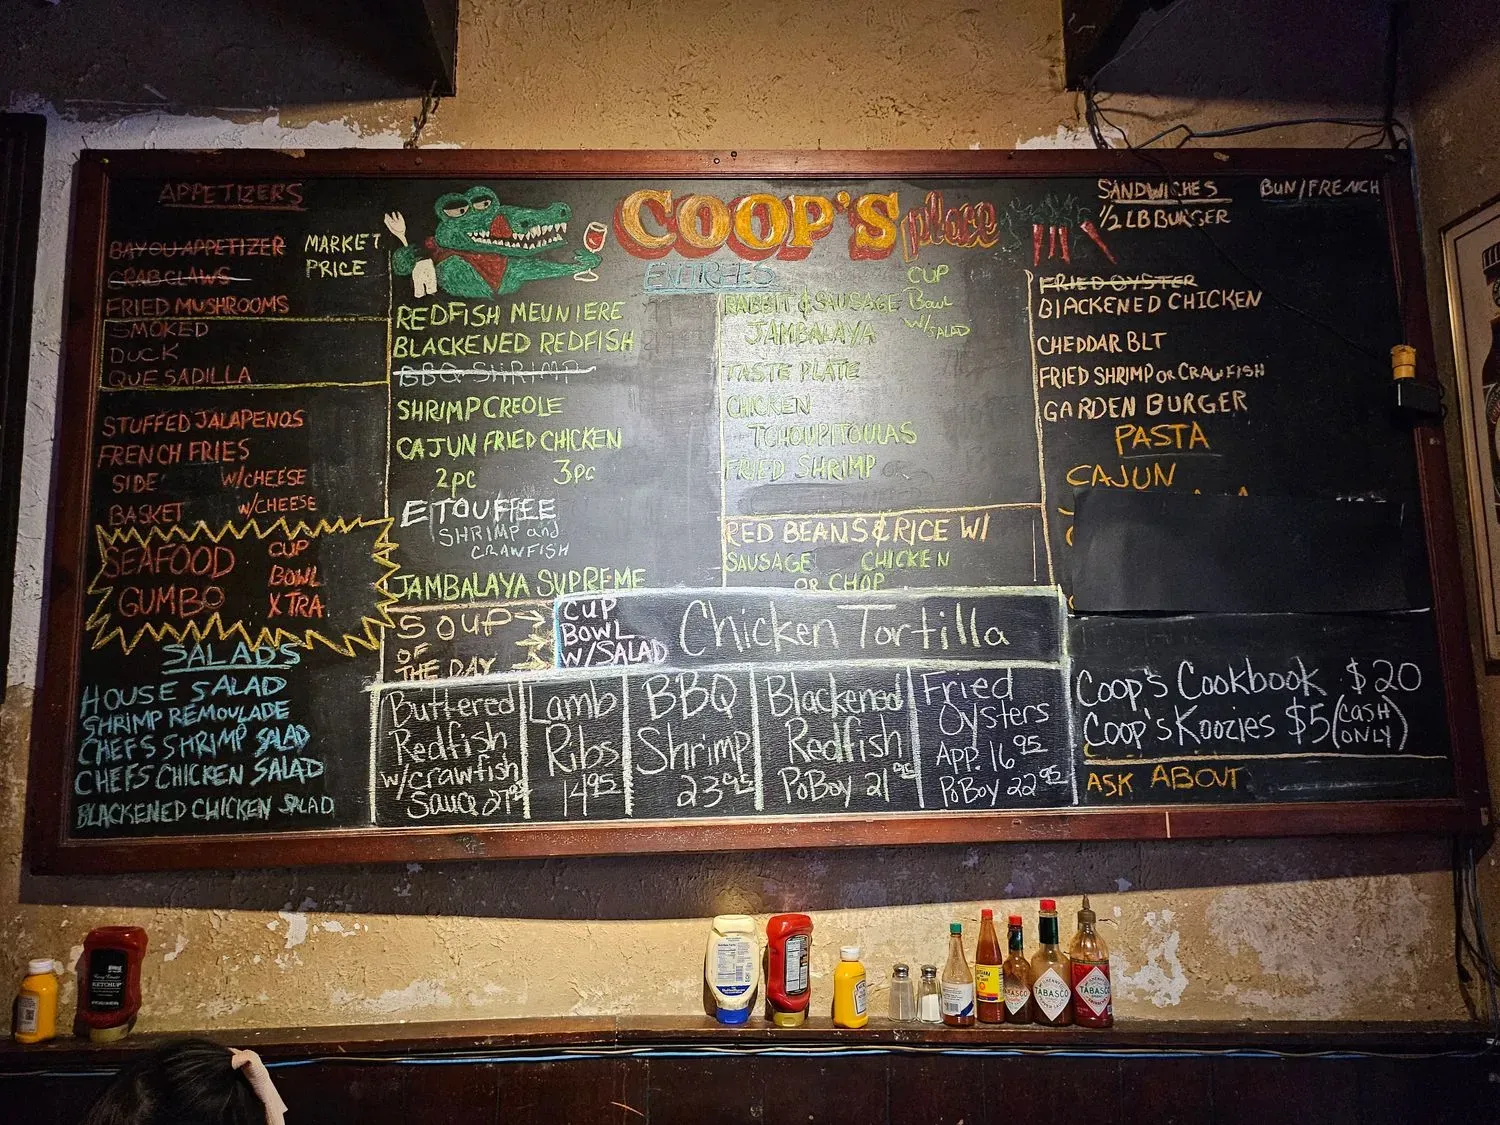 COOP'S place
APPETIZERS
BAYOU APPETIZER
CRAB CLAWS
MARKET
PRICE
FRIED MUSHROOMS
SMOKED
DUCK
QUESADILLA
STUFFED JALAPENOS
FRENCH FRIES
SIDE W/CHEESE
BASKET W/CHEESE
SEAFOOD
GUMBO
CUP
BOWL
XTRA
SALADS
HOUSE SALAD
SHRIMP REMOULADE
CHEFS SHRIMP SALAD
CHEFS CHICKEN SALAD
BLACKENED CHICKEN SALAD
ENTREES
REDFISH MEUNIERE
BLACKENED REDFISH
BBQ SHRIMP
SHRIMP CREOLE
CAJUN FRIED CHICKEN
2pc 3pc
ETOUFFEE
SHRIMP and
CRAWFISH
JAMBALAYA SUPREME
RABBIT & SAUSAGE
JAMBALAYA
CUP
Bowl
W/SALAD
TASTE PLATE
CHICKEN
TCHOUPITOULAS
FRIED SHRIMP
RED BEANS & RICE W/
SAUSAGE CHICKEN
OR CHOP
SOUP
OF
THE DAY
CUP
BOWL
W/SALAD
Chicken Tortilla
Buttered
Redfish
w/crawfish
Sauce 27.95
Lamb
Ribs
14.95
BBQ
Shrimp
23.95
Blackened
Redfish
PoBoy 21.95
Fried
Oysters
APP. 16.95
PoBoy 22.95
SANDWICHES BUN/FRENCH
1/2 LB BURGER
FRIED OYSTER
BLACKENED CHICKEN
CHEDDAR BLT
FRIED SHRIMP OR CRAWFISH
GARDEN BURGER
PASTA
CAJUN
Coop's Cookbook $20
Coop's Koozies $5 (CASH ONLY)
ASK ABOUT
KETCHUP
TABASCO
TABASCO
TABASCO